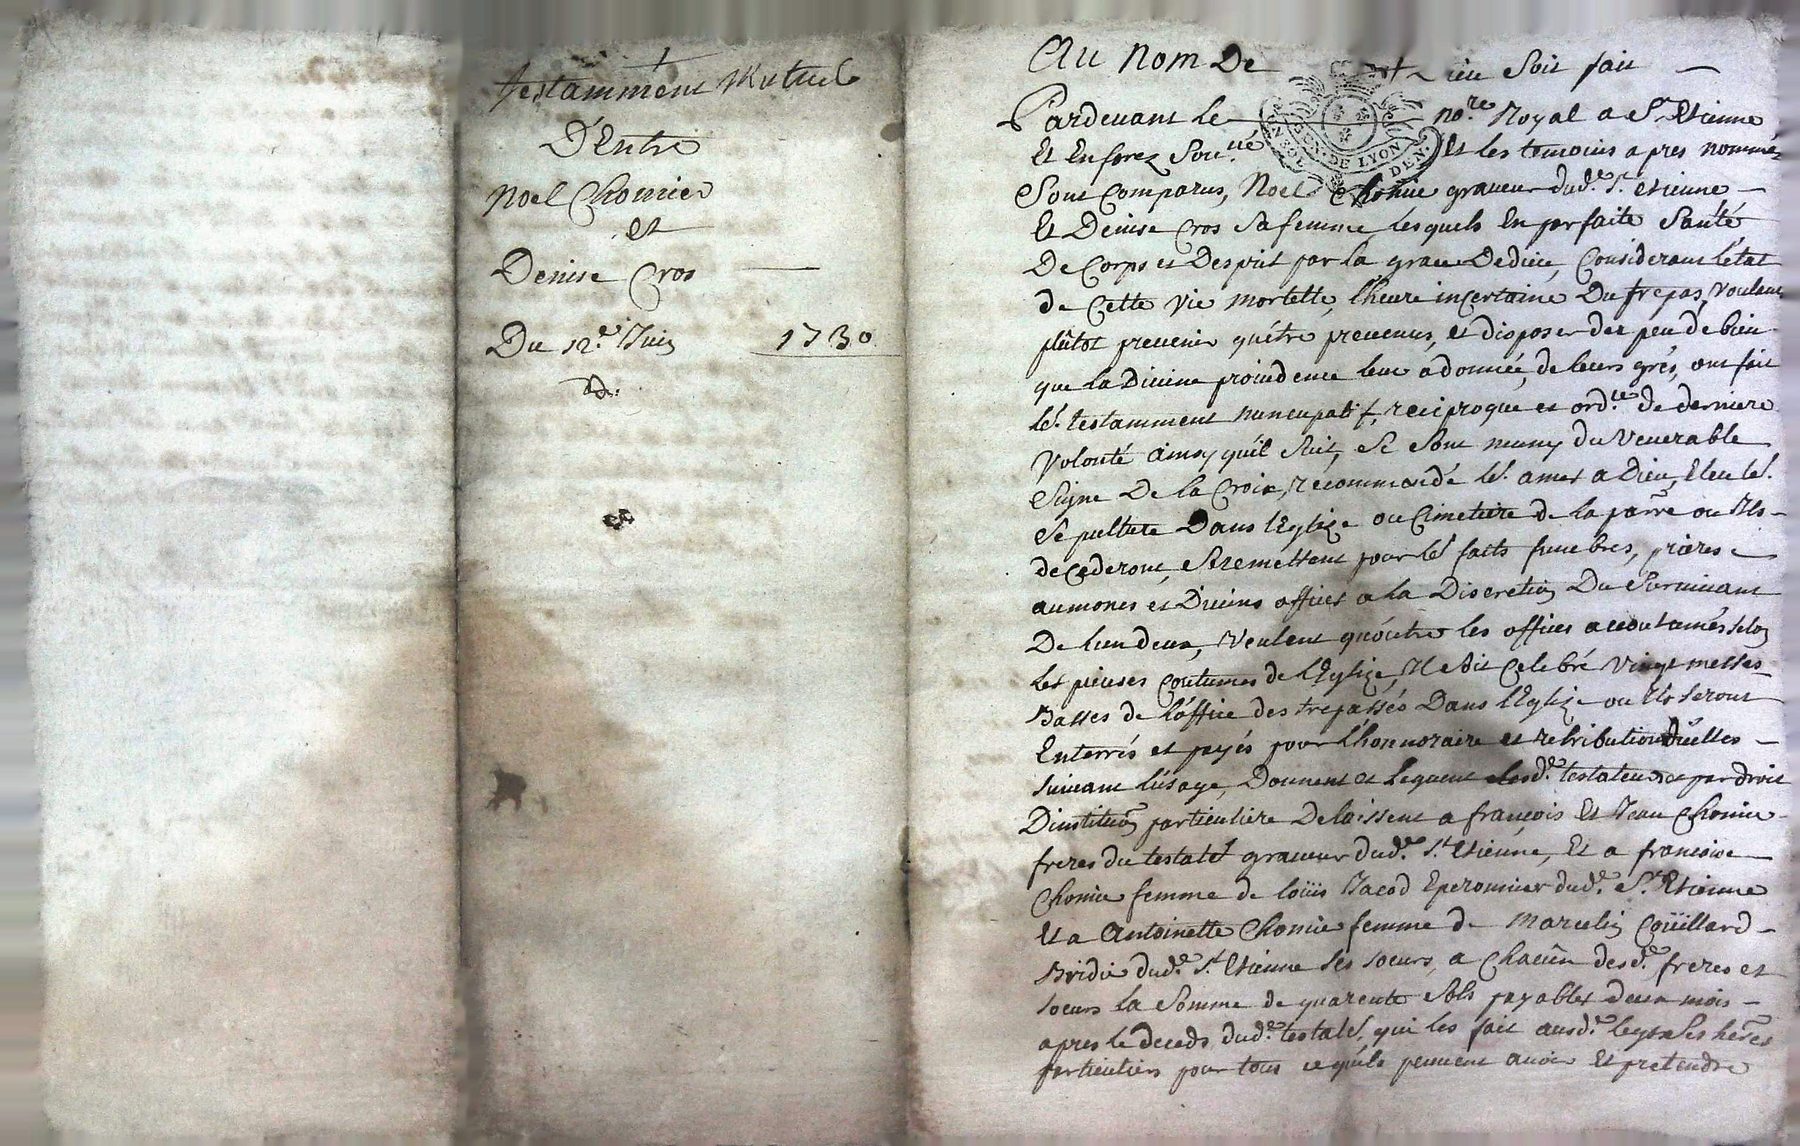 testamment Mutuel
D'Entre
Noel Chomier
et
Denise Cros
Du 12e Juin 1730
Au Nom De Dieu Soit fait
Pardevant Le nore Royal a St Etienne
Et En forez Sousné Et les temoins apres nommés
GEN. DE LYON
Sont Comparus, Noel Chomie graveur dudt St etienne
Et Denise Cros Sa femme Lesquels En parfaite Santé
De Corps et Desprit par la grace Dedieu, Considerant L'état
de Cette vie mortelle, l'heure incertaine Du trepas, Voulant
plûtot prevenir qu'être prevenus, et disposer des peu de bien
que La Divine providence leur a donnée, de leurs grés, ont fait
lr testamment nuncupatif, reciproque et ordre de derniere
Volonté ainsy qu'il Suit, Se Sont muny du Venerable
Signe De la Croix, recommandé lrs ames a Dieu, Eleu lr
Sepulture Dans l'Eglize ou Cimetiere de la parre ou Ils
decederont, Se remettent pour lrs faits funebres, prieres
aumones et Divins offices a la Discretion Du Survivant
De lun deux, Veulent qu'outre les offices accoutumés selon
Les pieuses Coutumes de l'Eglize, Il Soit Celebré vingt messes
Basses de l'office des trepassés Dans l'Eglize ou Ils Seront
Enterrés et payés pour l'honnoraire et retribution d'icelles
suivant l'usage, Donnent et Leguent lesdt testateurs et par droit
D'institution particuliere Delaissent a françois Et Jean Chomie
freres du testatr graveur dudt St Etienne, Et a francoise
Chomie femme de loüis Jacod Eperonnier dudt St Etienne
Et a Antoinette Chomie femme de Marcelin Coüillard
Bridie dudt St Etienne Ses soeurs, a Chacun desdt freres et
soeurs la Somme de quarente Sols payables deux mois
apres le deceds dudt testatr, qui les fait ausdt legs ses hers
particuliers pour tous ce qu'ils peuvent avoir Et pretendre